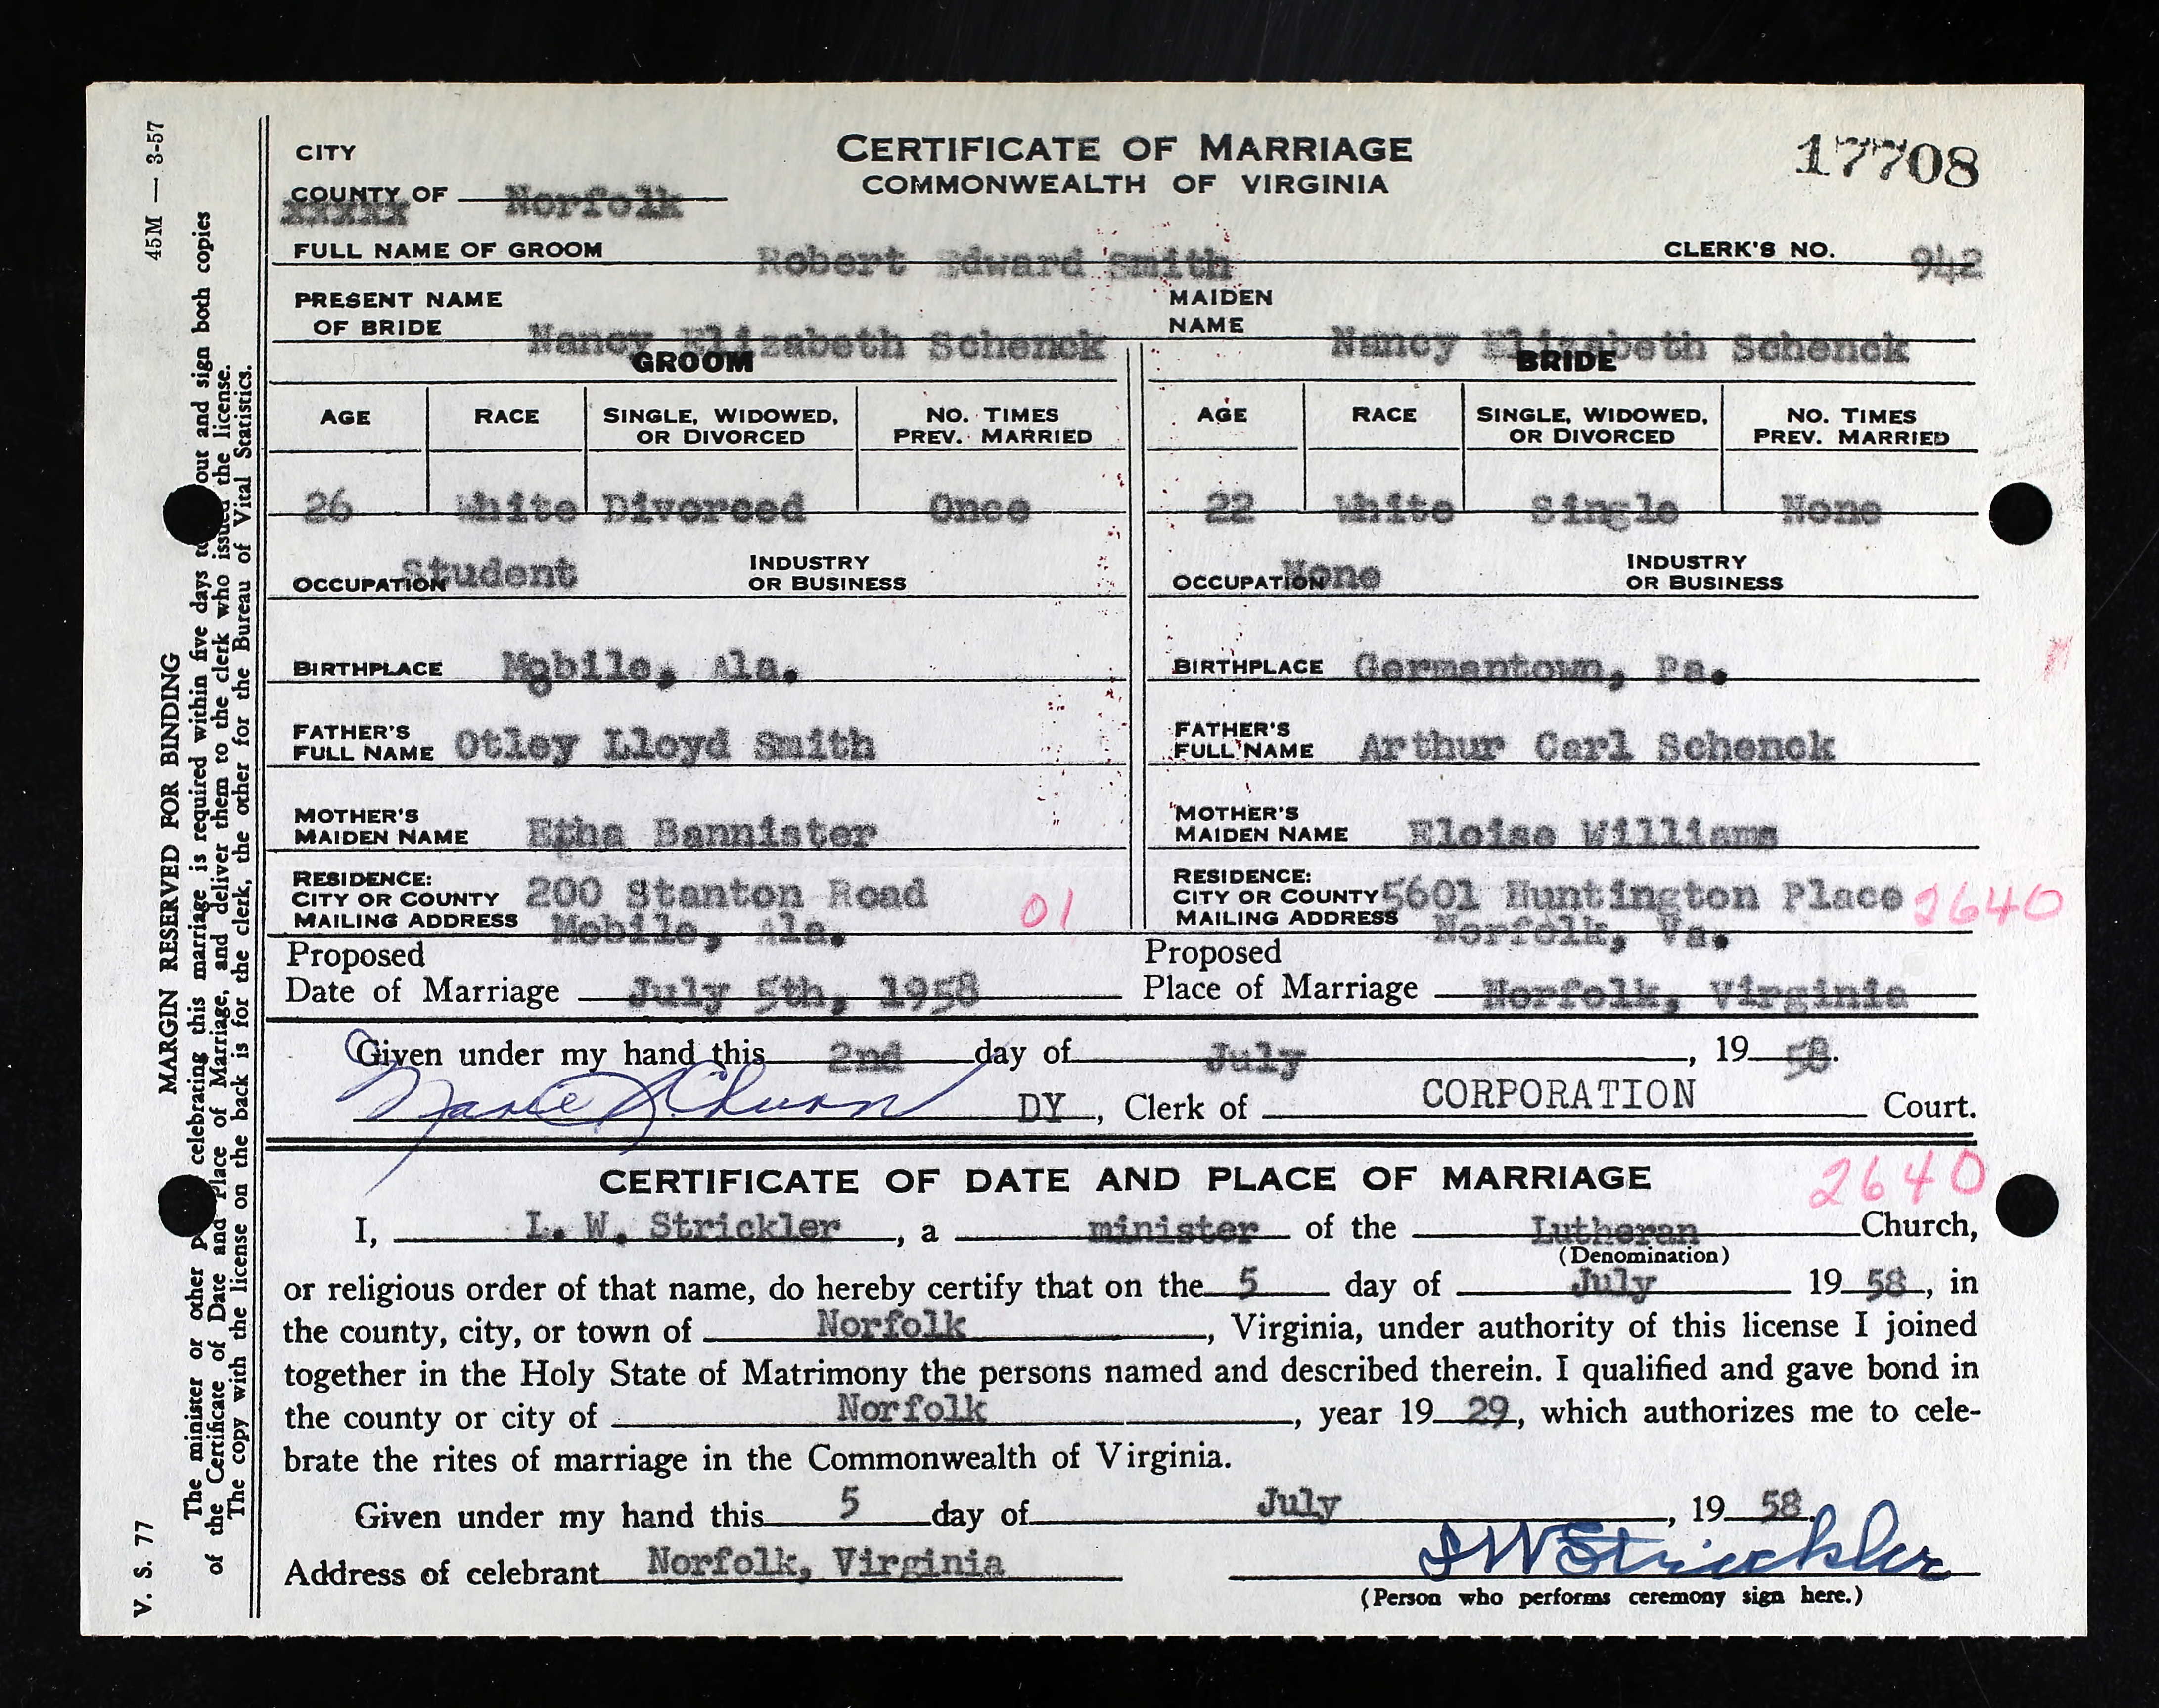 45M — 3-57
MARGIN RESERVED FOR BINDING
The minister or other celebrating this marriage is required within five days out and sign both copies
of the Certificate of Date and Place of Marriage, and deliver them to the clerk who issued the license.
The copy with the license on the back is for the clerk, the other for the Bureau of Vital Statistics.
V. S. 77
CERTIFICATE OF MARRIAGE
COMMONWEALTH OF VIRGINIA
17708
CITY
COUNTY OF Norfolk
xxxxx
FULL NAME OF GROOM Robert Edward Smith CLERK'S NO. 942
PRESENT NAME OF BRIDE Nancy Elizabeth Schenck MAIDEN NAME Nancy Elizabeth Schenck
GROOM BRIDE
AGE RACE SINGLE, WIDOWED, OR DIVORCED NO. TIMES PREV. MARRIED AGE RACE SINGLE, WIDOWED, OR DIVORCED NO. TIMES PREV. MARRIED
26 White Divorced Once 22 White Single None
OCCUPATION Student INDUSTRY OR BUSINESS OCCUPATION None INDUSTRY OR BUSINESS
BIRTHPLACE Mobile, Ala. BIRTHPLACE Germantown, Pa.
FATHER'S FULL NAME Otley Lloyd Smith FATHER'S FULL NAME Arthur Carl Schenck
MOTHER'S MAIDEN NAME Bannister MOTHER'S MAIDEN NAME Eloise Williams
RESIDENCE: CITY OR COUNTY MAILING ADDRESS 200 Stanton Road Mobile, Ala. 01 RESIDENCE: CITY OR COUNTY MAILING ADDRESS 5601 Huntington Place Norfolk, Va. 2640
Proposed Date of Marriage July 5th, 1958 Proposed Place of Marriage Norfolk, Virginia
Given under my hand this 2nd day of July, 1958.
DY, Clerk of CORPORATION Court.
CERTIFICATE OF DATE AND PLACE OF MARRIAGE 2640
I, L. W. Strickler, a minister of the Lutheran Church,
(Denomination)
or religious order of that name, do hereby certify that on the 5 day of July 1958, in
the county, city, or town of Norfolk, Virginia, under authority of this license I joined
together in the Holy State of Matrimony the persons named and described therein. I qualified and gave bond in
the county or city of Norfolk, year 1929, which authorizes me to cele-
brate the rites of marriage in the Commonwealth of Virginia.
Given under my hand this 5 day of July, 1958.
Address of celebrant Norfolk, Virginia LW Strickler
(Person who performs ceremony sign here.)